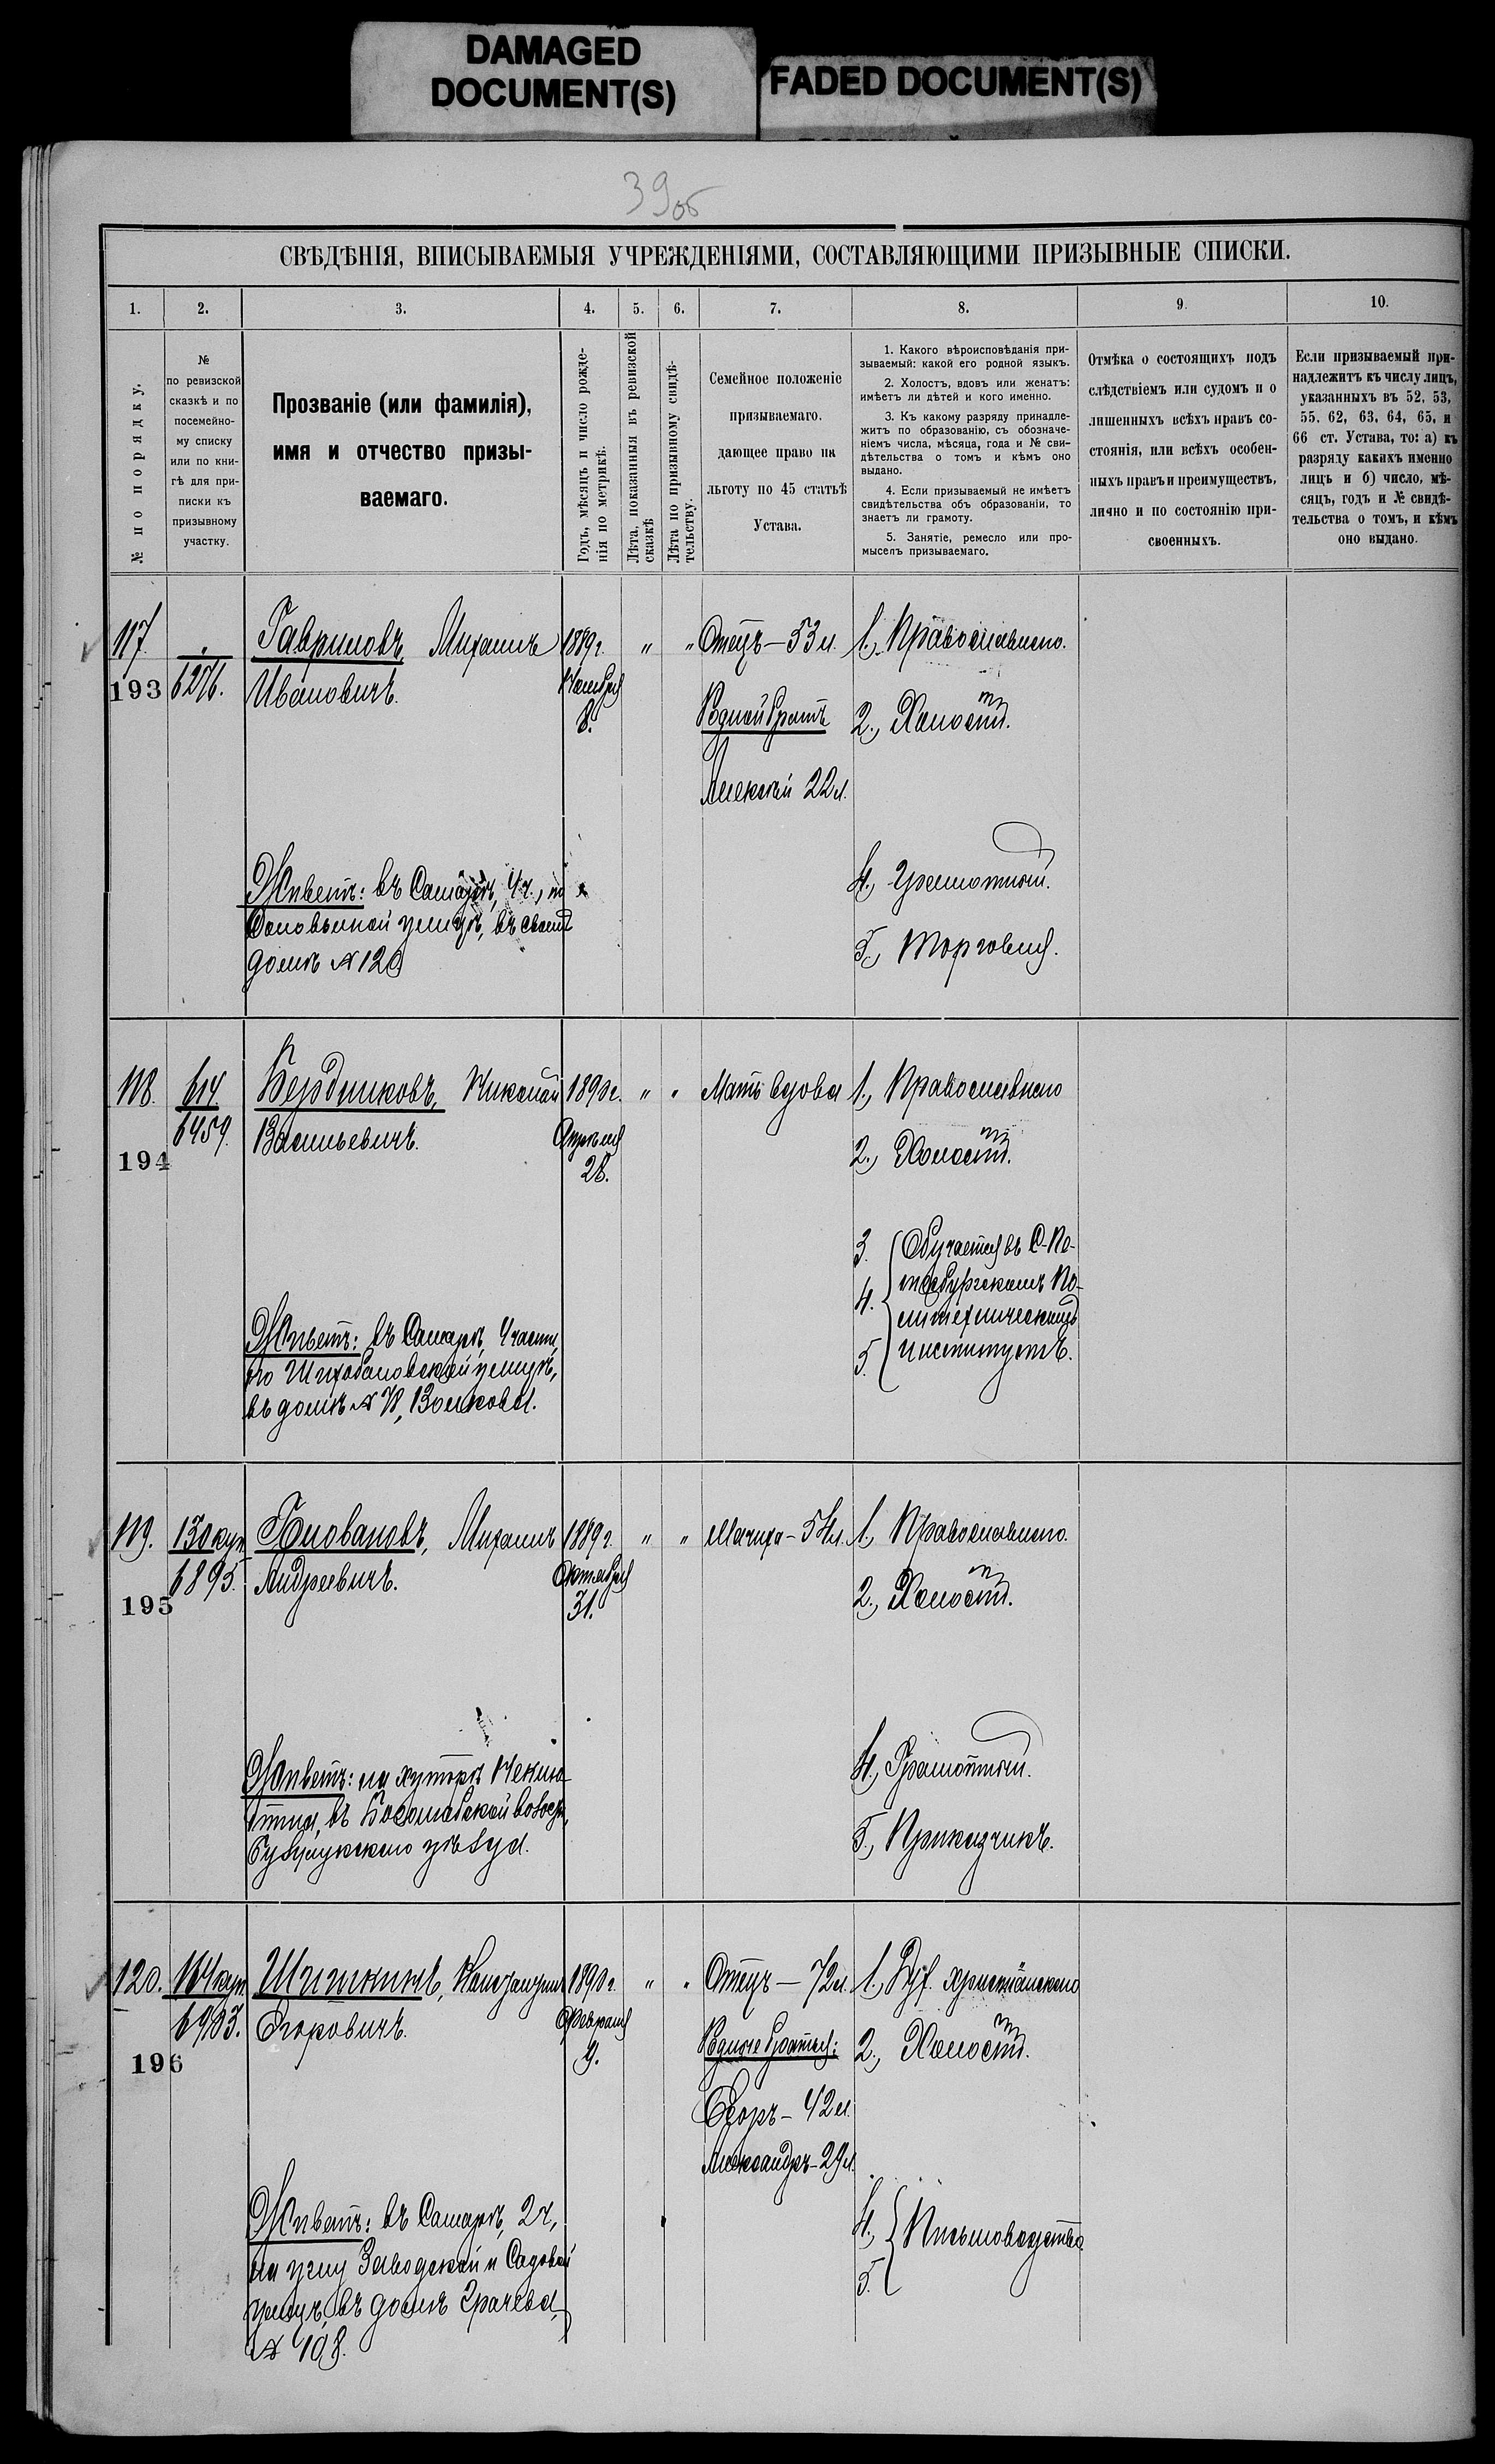 DAMAGED
DOCUMENT(S)
FADED DOCUMENT(S)
39об
СВѢДѢНІЯ, ВПИСЫВАЕМЫЯ УЧРЕЖДЕНІЯМИ, СОСТАВЛЯЮЩИМИ ПРИЗЫВНЫЕ СПИСКИ.
1.
2.
3.
4.
5.
6.
7.
8.
9.
10.
№ по порядку.
№
по ревизской
сказкѣ и по
посемейно-
му списку
или по кни-
гѣ для при-
писки къ
призывному
участку.
Прозваніе (или фамилія),
имя и отчество призы-
ваемаго.
Годъ, мѣсяцъ и число рожде-
нія по метрикѣ.
Лѣта, показанныя въ ревизской
сказкѣ
Лѣта по призывному свидѣ-
тельству.
Семейное положеніе
призываемаго,
дающее право на
льготу по 45 статьѣ
Устава.
1. Какого вѣроисповѣданія при-
зываемый: какой его родной языкъ.
2. Холостъ, вдовъ или женатъ:
имѣетъ ли дѣтей и кого именно.
3. Къ какому разряду принадле-
житъ по образованію, съ обозначе-
ніемъ числа, мѣсяца, года и № сви-
дѣтельства о томъ и кѣмъ оно
выдано.
4. Если призываемый не имѣетъ
свидѣтельства объ образованіи, то
знаетъ ли грамоту.
5. Занятіе, ремесло или про-
мыселъ призываемаго.
Отмѣка о состоящихъ подъ
слѣдствіемъ или судомъ и о
лишенныхъ всѣхъ правъ со-
стоянія, или всѣхъ особен-
ныхъ правъ и преимуществъ,
лично и по состоянію при-
своенныхъ.
Если призываемый при-
надлежитъ къ числу лицъ,
указанныхъ въ 52, 53,
55, 62, 63, 64, 65, и
66 ст. Устава, то: а) къ
разряду какихъ именно
лицъ и б) число, мѣ-
сяцъ, годъ и № свидѣ-
тельства о томъ, и кѣмъ
оно выдано.
117.
193
6276.
Гавриловъ, Михаилъ
Ивановичъ.
1889 г.
Ноября
8.
"
"
Отецъ — 53 л.
Родной братъ
Алексѣй 22 л.
1., Православнаго.
2., Холостъ.
4., Грамотный.
5., Торговля.
Живетъ: въ Самарѣ, 4 ч., по
Соловьиной улицѣ, въ своемъ
домѣ № 120
118.
194
614
6459.
Бердниковъ, Николай
Васильевичъ.
1890 г.
Апрѣля
28.
"
"
Мать вдова
1., Православнаго
2., Холостъ.
3.
4.
5.
Обучается въ С-Пе-
тербургскомъ По-
литехническомъ
институтѣ.
Живетъ: въ Самарѣ, 4 части,
по Шихобаловской улицѣ,
въ домѣ № 78, Волкова.
119.
195
130 куп.
6895.
Голованов, Михаилъ
Андреевичъ.
1889 г.
Октября
31.
"
"
Мачиха - 54 л.
1., Православнаго.
2., Холостъ.
4., Грамотный.
5., Приказчикъ.
Живетъ: на хуторѣ
въ волости,
Бузулукскаго уѣзда.
120.
196
164 куп.
6903.
Шишкинъ,
Егоровичъ.
1890 г.
Февраля
9.
"
"
Отецъ — 72 л.
Родные братья:
Егоръ — 42 л.
Александръ - 29 л.
1., христіанскаго
2., Холостъ.
4.,
5.
Письмоводство
Живетъ: въ Самарѣ, 2 ч,
на углу Заводской и Садовой
улицъ, въ домѣ Грачева,
№ 108.